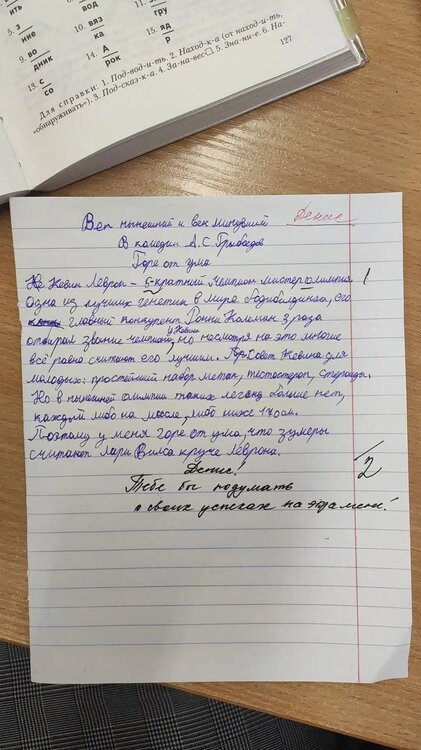 ить
вод
гру
5. з
ние
10. вяз
ка
15. яд
р
9. во
дник
14. А
рок
13. С
со
Для справки. 1. Под-вод-и-ть. 2. Наход-к-а (от наход-и-ть,
«обнаруживать»). 3. Под-сказ-к-а. 4. За-на-вес□. 5. Зна-ни-е. 6. На-
127
Век нынешний и век минувший
Денис
В комедии А.С. Грибоедов
Горе от ума
Не Кевин Леврон - 5-кратний чемпион мистер олимпия
Одна из лучших генетик в мира бодибилдинга, его
главный конкурент Ронни Колеман 3 раза
отбирал звание чемпиона у Кевина, но несмотря на это многие
всё равно считают его лучшим. Совет Кевина для
молодых: простейший набор метан, тестостерон, стероиды.
Но в нынешней олимпии таких легенд больше нет,
каждый либо на масле, либо ниже 170 см.
Поэтому у меня горе от ума, что зумеры
считают Лари Вилса круче Леврона.
2
Денис!
Тебе бы подумать
о своих успехах на экзамене!